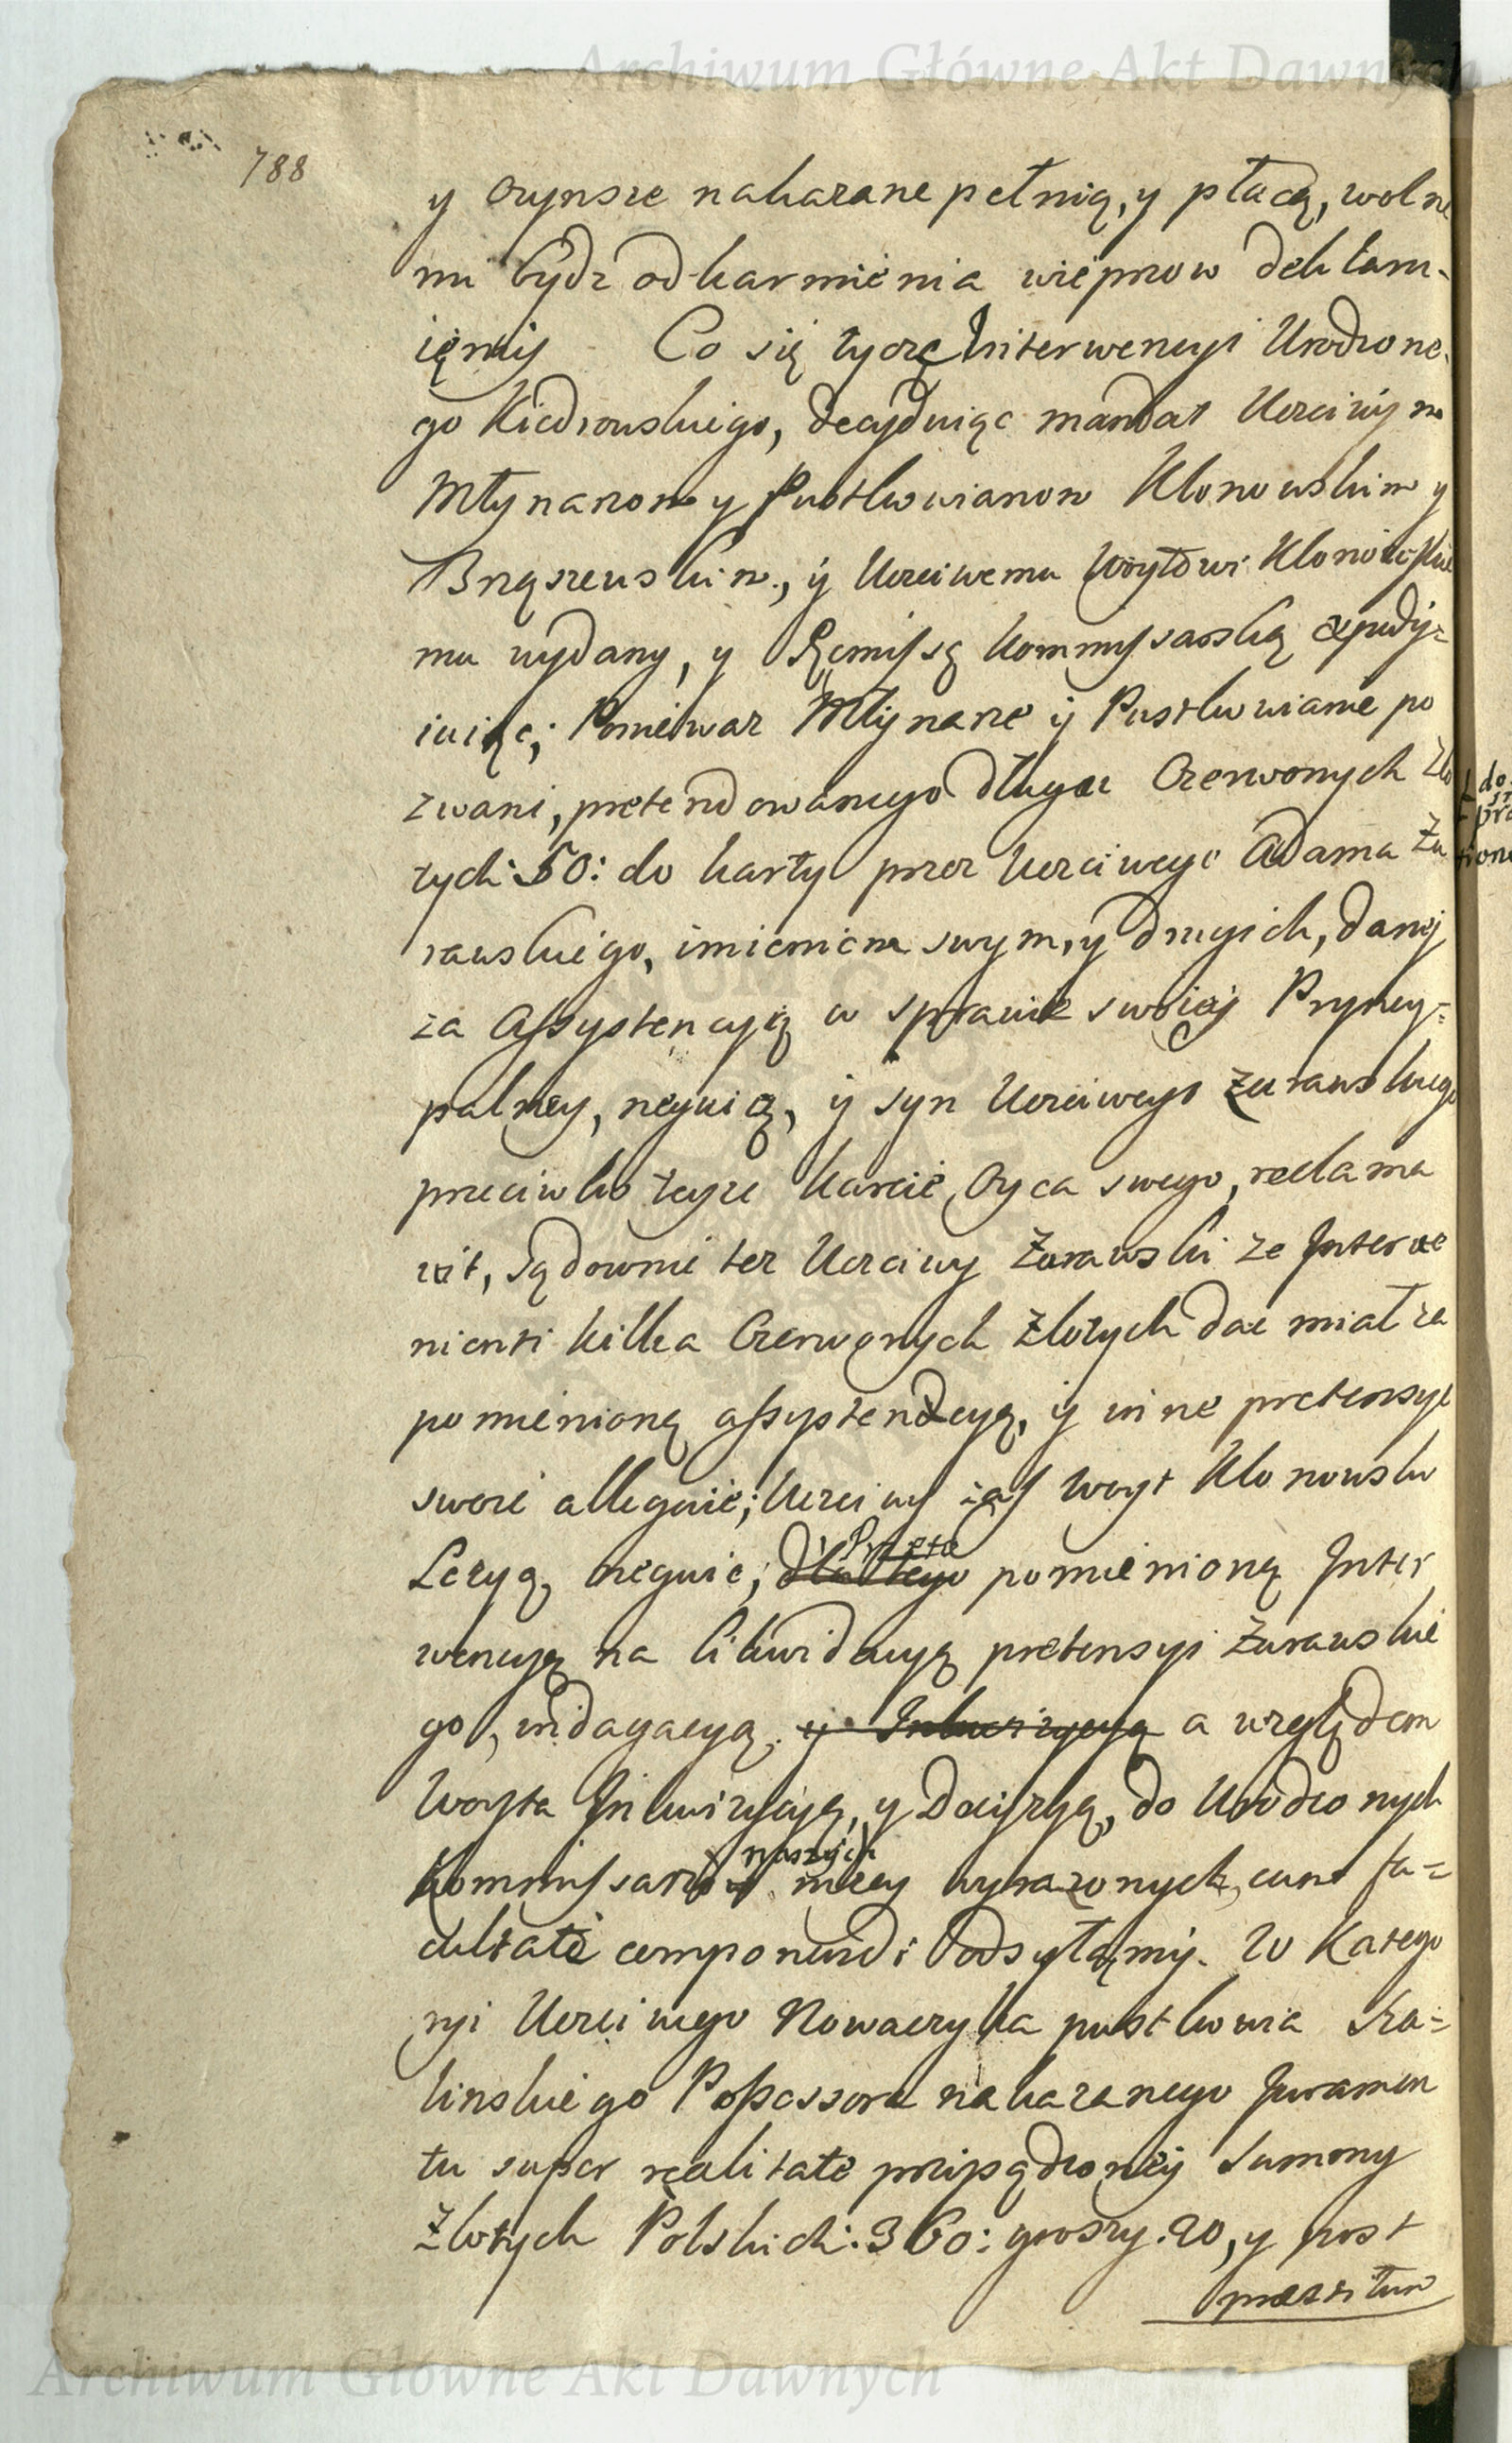 Archiwum Główne Akt Dawnych
788
y czynsze nakazane pełnią, y płacą, wolne
mi bydz od karmienia wieprzow deklaru-
iemy Co się tycze Interwencyi Urodzone-
go Kiedrowskiego, decyduiąc mandat Uczciwym
Młynarzom y Pustkowianom Klonowskim y
Brąszewskim, y Uczciwemu Woytowi Klonowskie
mu wydany, y Remissą Kommissarską expedy-
iuiąc; Ponieważ Młynarze y Pustkowianie po
zwani, pretendowanego długu Czerwonych Zło
tych: 50: do karty przez Uczciwego Adama Żu
rawskiego, imieniem swym, y drugich, daney
za Assystencyą w sprawie swoiey Pryncy-
palney, neguią, y syn Uczciwego Żurawskiego
przeciwko teyze karcie Oyca swego, reclama
vit, Sądownie tez Uczciwy Żurawski ze Interve
nienti kilka Czerwonych Złotych dać miał za
pomienioną assystencyą, y inne pretensye
swoie alleguie; Uczciwy zaś Woyt Klonowski
Decyzą neguie; dla tego Przeto pomienioną Inter
wencyą na likwidacyą pretensyi Żurawskie
go, indagacyą, y Inkwizycyą a względem
Woyta Inkwizycyą, y Decyzyą, do Urodzonych
Kommissarzow naszych nizey wyrazonych, cum fa-
cultate componendi odsyłamy. W Katego
ryi Uczciwego Nowaczyka pustkowia Ska-
linskiego Possessora nakazanego Juramen
tu super realitate przysądzoney Summy
Złotych Polskich: 360: groszy. 20, y post
præstitum
do
Archiwum Główne Akt Dawnych